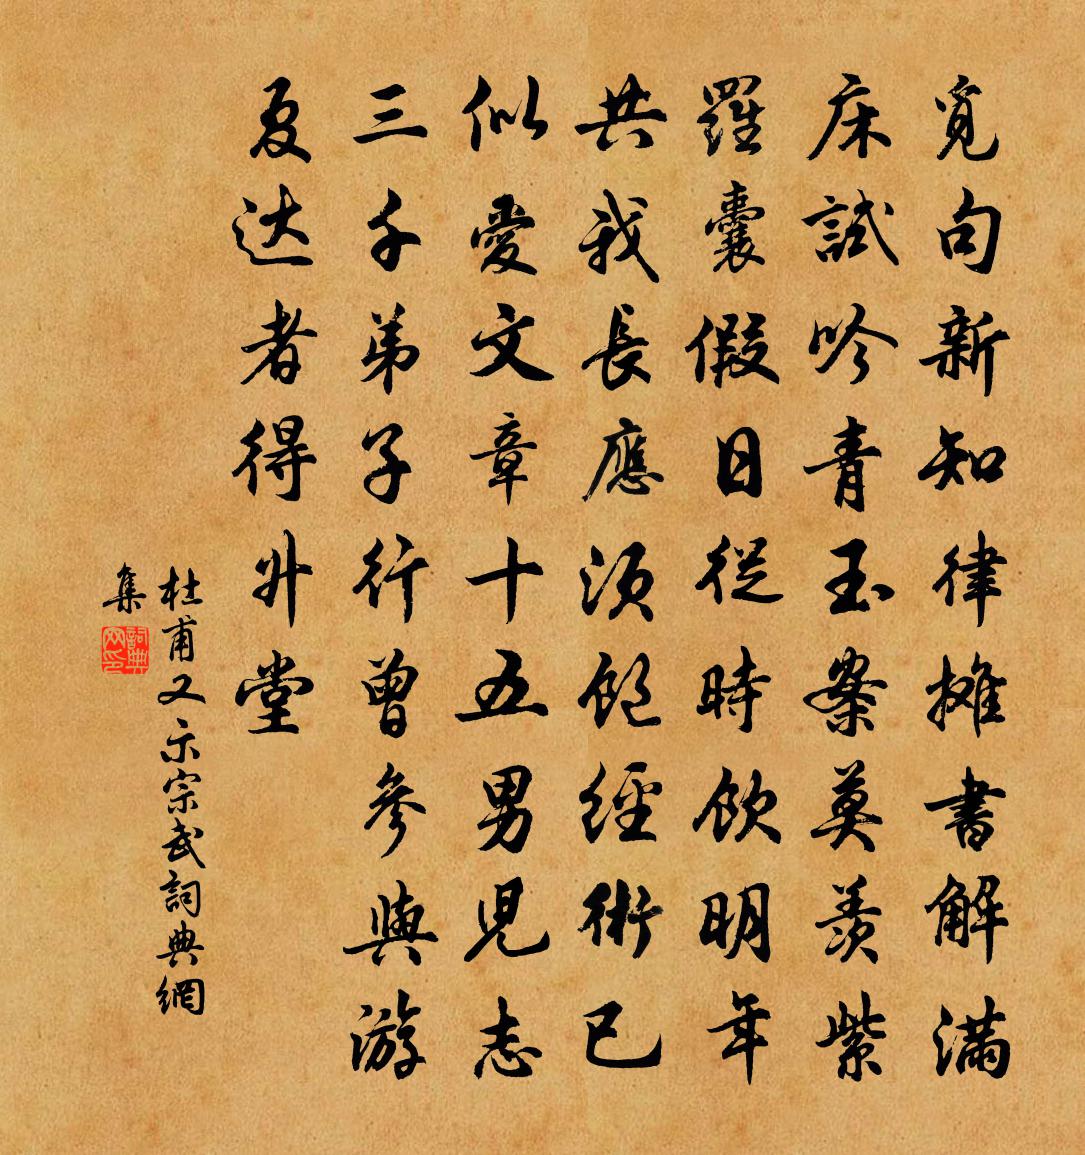 覓句新知律攤書解滿
床試吟青玉案莫羨紫
羅囊假日從時飲明年
共我長應須飽經術已
似愛文章十五男兒志
三千弟子行曾參與游
夏达者得升堂
杜甫又示宗武詞典網
集
詞典网印